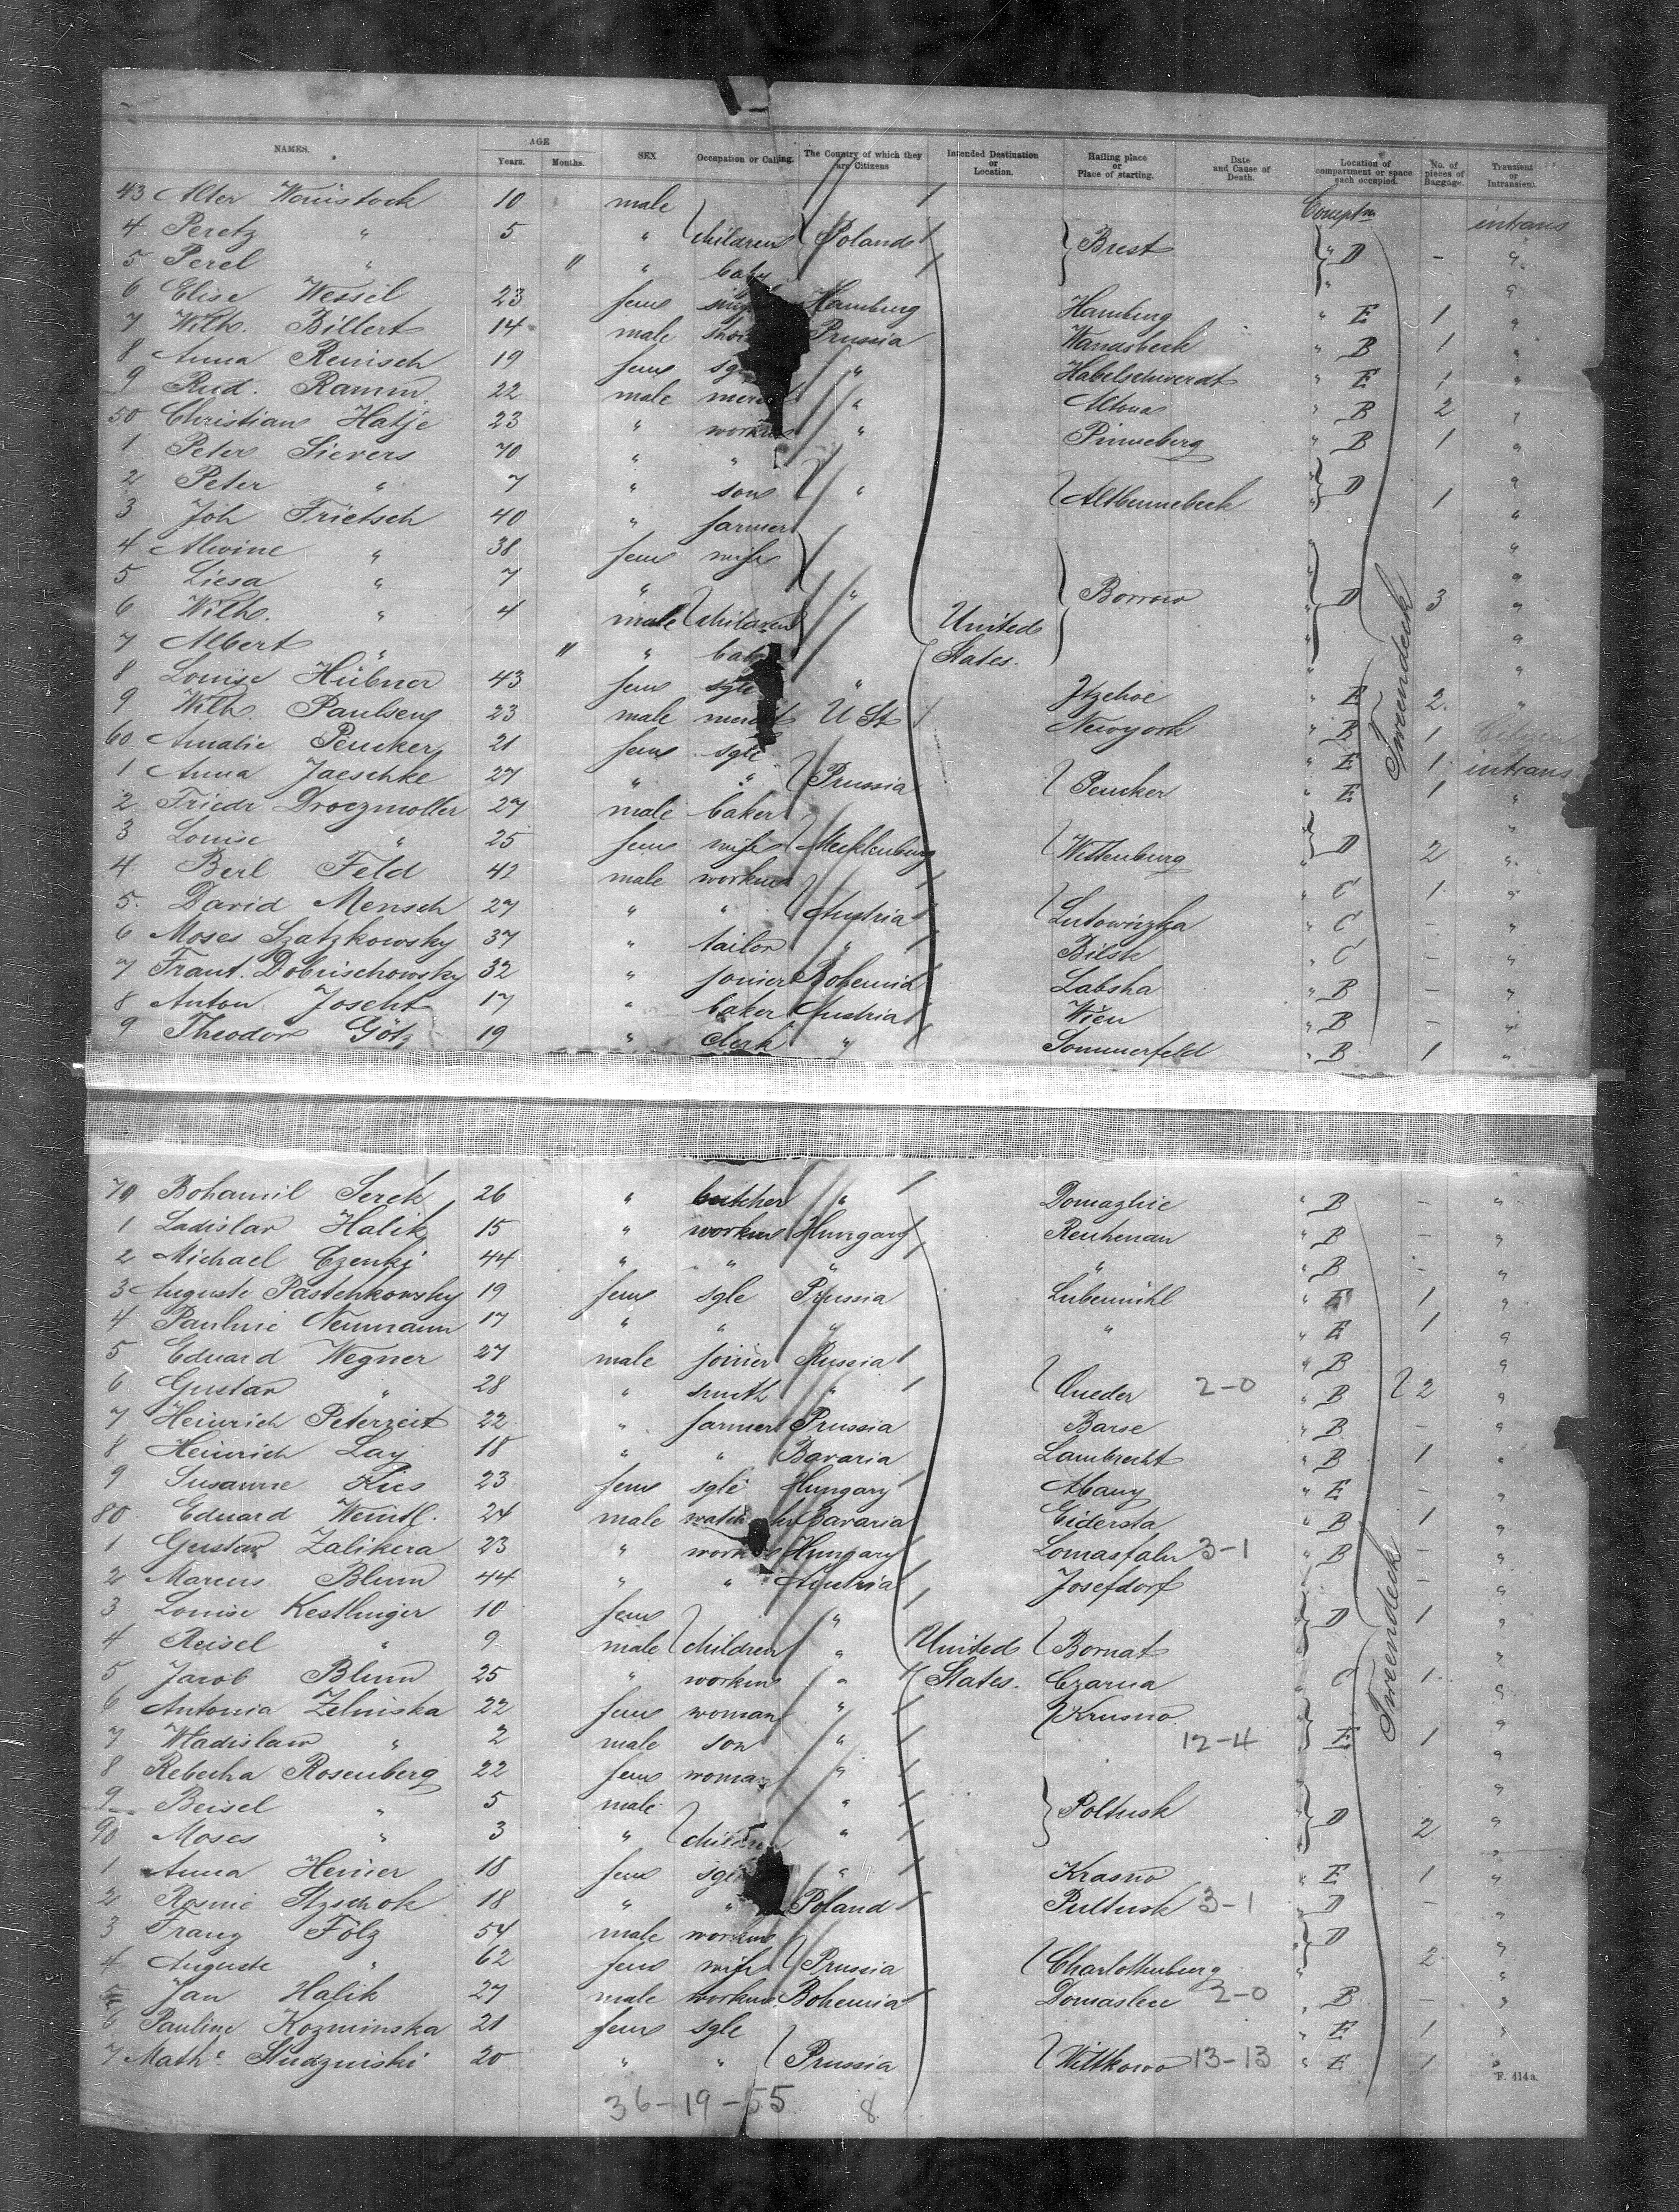 NAMES. AGE Years. Months. SEX Occupation or Calling. The Country of which they are Citizens Intended Destination or Location. Hailing place or Place of starting. Date and Cause of Death. Location of compartment or space each occupied. No. of pieces of Baggage. Transient or Intransient.
43 Alter 10 male intrans
4 Peretz " 5 " children Poland Brest " D - "
5 Perel " 11 " baby "
6 Elise Wessel 23 fem Hamburg Hamburg " E 1 "
7 Wilh. Billert 14 male Prussia Wandsbeck " B 1 "
8 Anna Renisch 19 fem " Habelschwerdt " E 1 "
9 Rud. Ramm 22 male " Altona " B 2 "
50 Christian Hatje 23 " " Pinneberg " B 1 "
1 Peter Sievers 70 " " "
2 Peter " 7 " son " D 1 "
3 Joh Frietsch 40 " farmer "
4 Alwine " 38 fem wife "
5 Liesa " 7 " " Borrow D 3 "
6 Wilh. " 4 male children United "
7 Albert " 11 " baby States. "
8 Louise Hübner 43 fem sgle " Itzehoe " E 2 "
9 Wilh. Paulsen 23 male U St Newyork " B 1
60 Amalie Peucker 21 fem sgle " E 1 intrans
1 Anna Jaeschke 27 " " Prussia Peucker " E 1 "
2 Friedr Droezmoller 27 male baker "
3 Louise " 25 fem wife Mecklenburg Wittenburg D 2 "
4 Berl Feld 42 male " C 1 "
5 David Mensch 27 " " Austria " C - "
6 Moses Szatzkowsky 37 " tailor " Bilsk " C - "
7 Frant. Dobrischowsky 32 " joiner Bohemia Labsha " B - "
8 Anton Joscht 17 " baker Austria Wien " B - "
9 Theodor Götz 19 " clerk " Sommerfeld " B 1 "
Tweendeck
70 Bohamil Serek 26 " butcher " Domazlice " B - "
1 Ladislav Halik 15 " Hungary " B - "
2 Michael Czenki 44 " " " " " B - "
3 Auguste Pastehkowsky 19 fem sgle Prussia Liebemühl " E 1 "
4 Pauline Neumann 17 " " " " " E 1 "
5 Eduard Wegner 27 male joiner Russia " B "
6 Gustav " 28 " smith " 2-0 " B 2 "
7 Heinrich Peterzeit 22 " farmer Prussia Barse " B - "
8 Heinrich Lay 18 " " Bavaria Lambrecht " B 1 "
9 Susanne Kics 23 fem sgle Hungary Abany " E - "
80 Eduard Weintl. 24 male Bavaria Eidersta " B 1 "
1 Gustav Zalikera 23 " Hungary 3-1 " B - "
2 Marcus Blum 44 " " Austria Josefdorf " - "
3 Louise Kestlinger 10 fem " D 1 "
4 Reisel " 9 male children " United Bornat "
5 Jacob Blum 25 " " States. Czarna C 1 "
6 Antonia Zelinska 22 fem woman " "
7 Wladislaw " 2 male son " 12-4 E 1 "
8 Rebecka Rosenberg 22 fem woman " "
9 Beisel " 5 male " Poltusk D 2 "
90 Moses " 3 " children " "
1 Anna Heimer 18 fem sgle " Krasno " E 1 "
2 18 " " Poland Pultusk 3-1 " D - "
3 Franz Fölz 54 male D "
4 Auguste " 62 fem wife Prussia Charlottenburg " 2 "
5 Jan Halik 27 male Bohemia 2-0 " B - "
6 Pauline Kozminska 21 fem sgle " E 1 "
7 Mathe Studzinski 20 " " Prussia Wittkowo 13-13 " E 1 "
Tweendeck
F. 414a.
36-19-55 8